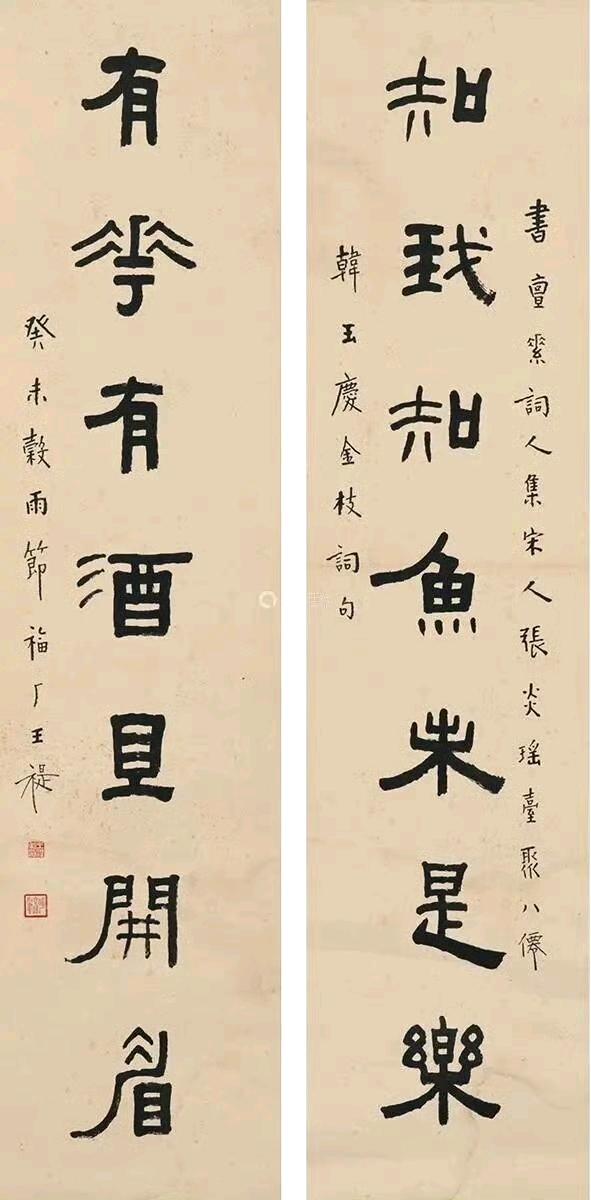 書亶素詞人集宋人張炎瑤臺聚八僊
知我知魚未是樂
韓玉慶金枝詞句
有花有酒且開眉
癸未穀雨節福厂王禔